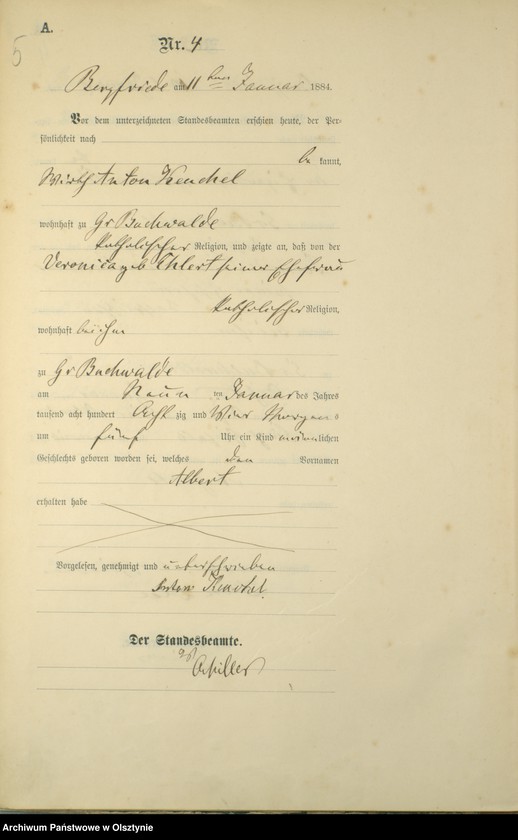 A.
5
Nr. 4
Bergfriede am 11 ten Januar 1884.
Vor dem unterzeichneten Standesbeamten erschien heute, der Per-
sönlichkeit nach
be kannt,
Wirth Anton
wohnhaft zu Gr Buchwalde
katholischer Religion, und zeigte an, daß von der
Veronica geb Ehlert seiner Ehefrau
katholischer Religion,
wohnhaft bei ihm
zu Gr Buchwalde
am Neun ten Januar des Jahres
tausend acht hundert Acht zig und Vier Morgens
um fünf Uhr ein Kind männlichen
Geschlechts geboren worden sei, welches den Vornamen
Albert
erhalten habe
Vorgelesen, genehmigt und unterschrieben
Anton
Der Standesbeamte.
Archiwum Państwowe w Olsztynie